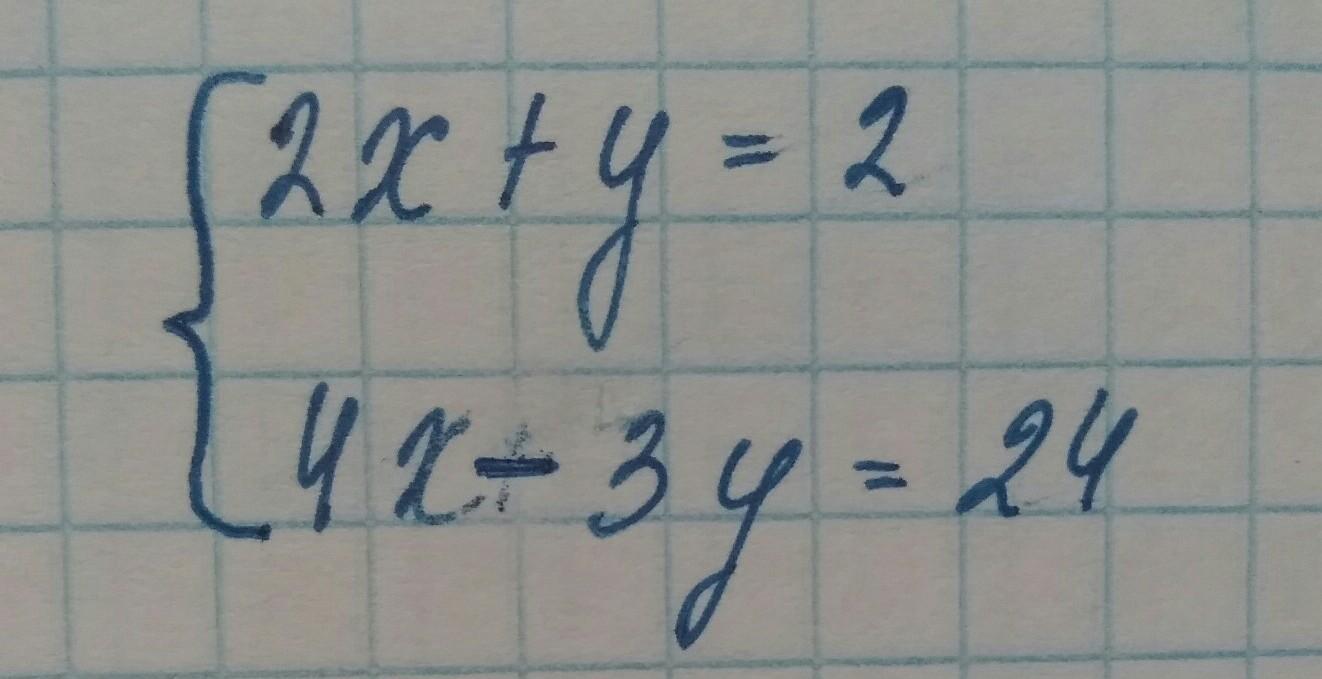 2x + y = 2
4x - 3y = 24